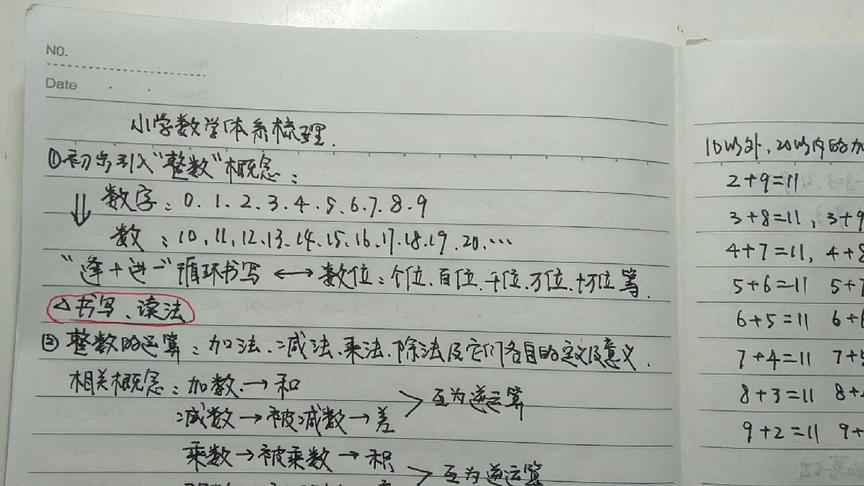 NO.
Date
小学数学体系梳理.
①初步引入"整数"概念：
数字：0.1.2.3.4.5.6.7.8.9
数：10.11.12.13.14.15.16.17.18.19.20.…
"逢十进一"循环书写 ⟷ 数位：个位.百位.千位.万位.十万位等.
△书写、读法
②整数的运算：加法.减法.乘法.除法及它们各自的定义及意义.
相关概念：加数.→和
互为逆运算
减数→被减数→差
乘数→被乘数→积
互为逆运算
10以外,20以内的加
2+9=11
3+8=11, 3+9
4+7=11, 4+8
5+6=11 5+7
6+5=11 6+6
7+4=11 7+
8+3=11 8+
9+2=11 9+